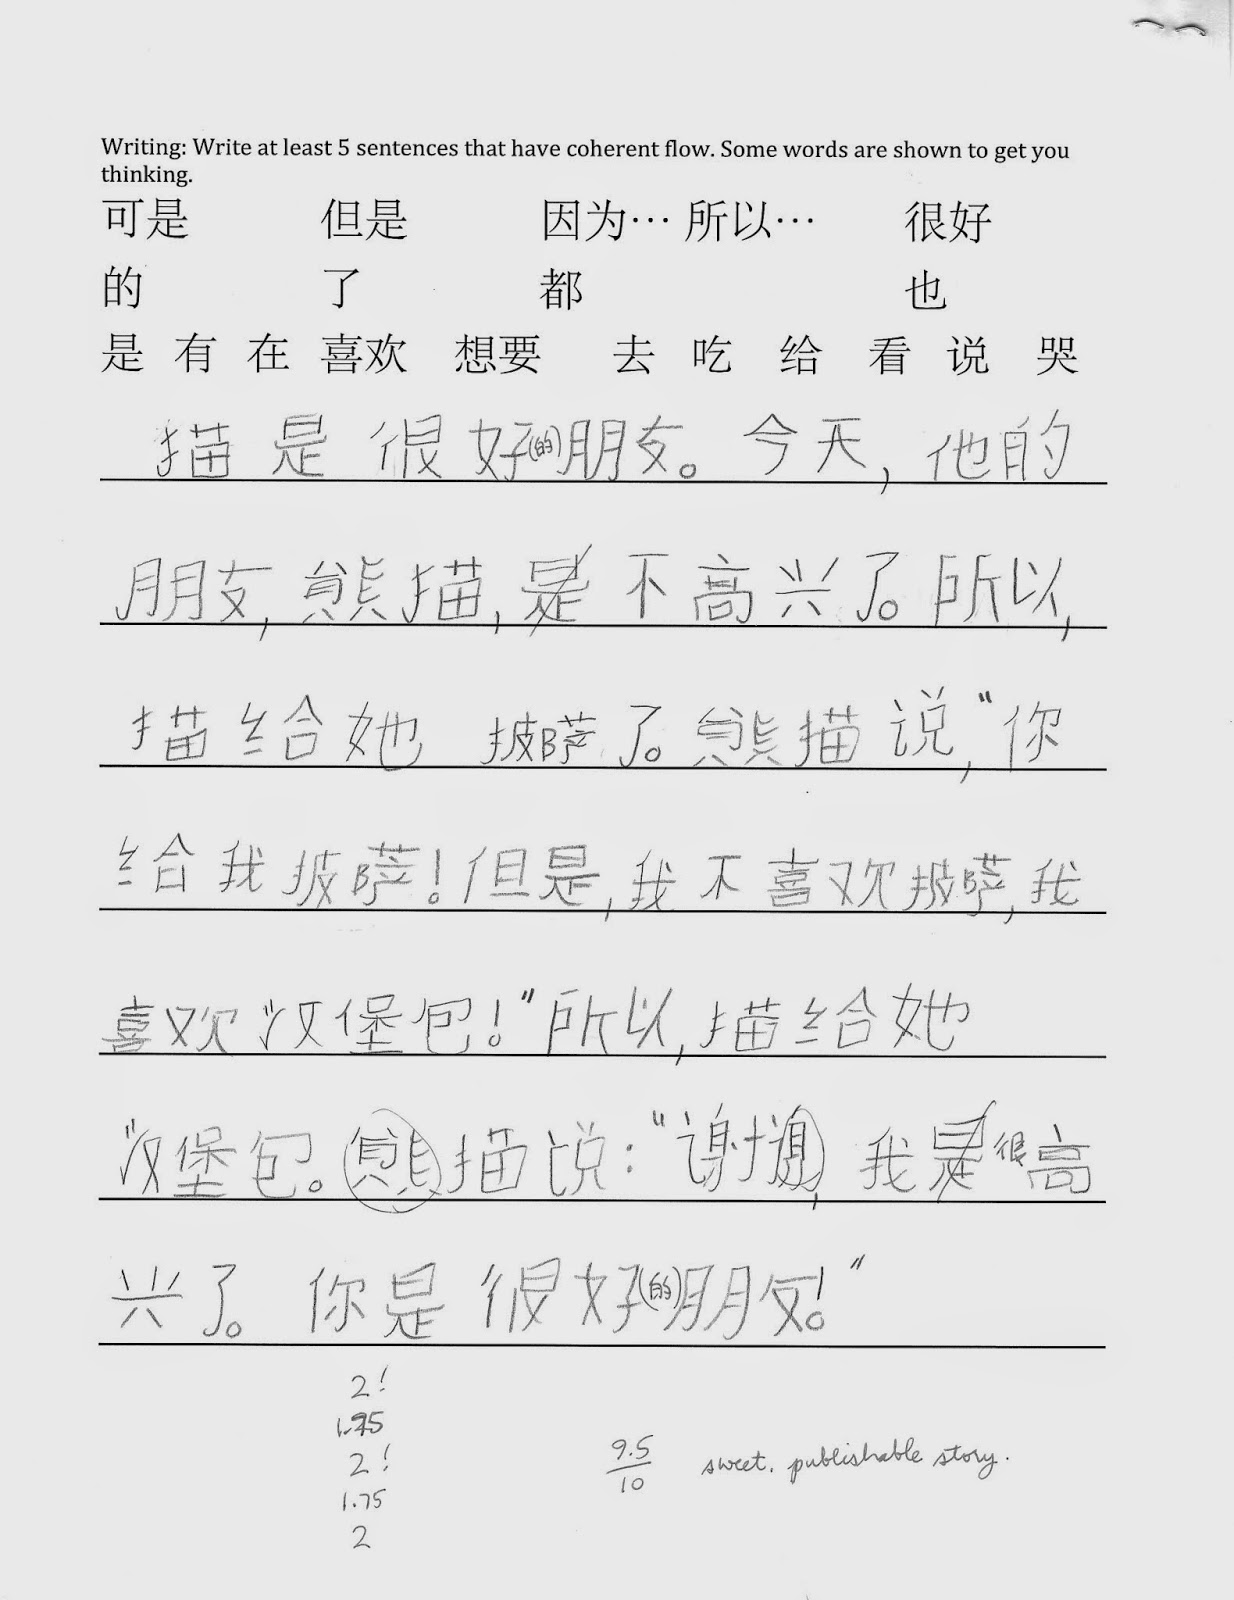 Writing: Write at least 5 sentences that have coherent flow. Some words are shown to get you
thinking.
可是 但是 因为… 所以… 很好
的 了 都 也
是 有 在 喜欢 想要 去 吃 给 看 说 哭
描 是 很 好(的)朋友。今天,他的
朋友,熊描,是 不 高 兴 了。所以,
描 给 她 披萨 了。熊描 说,“你
给 我 披萨!但是,我 不 喜欢 披萨,我
喜欢 汉堡包!”所以,描 给 她
汉堡包。熊描 说:“谢谢,我 是 很 高
兴 了。你 是 很 好(的)朋友!”
2!
1.75
2!
1.75
2
9.5
10
sweet, publishable story.